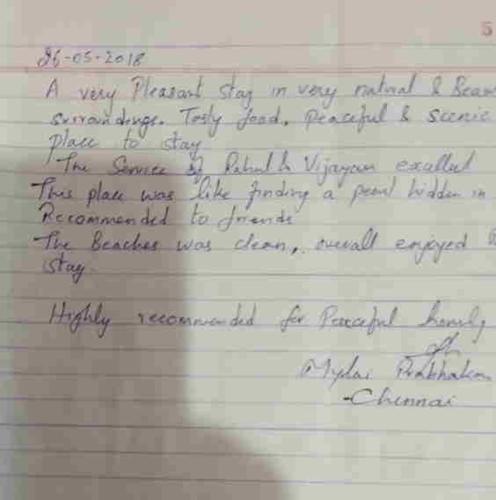 5
26-05-2018
A very Pleasant stay in very natural & Beau
surroundings. Tasty food, peaceful & scenic
place to stay
The Service of Rahul & Vijayan excellet
This place was like finding a pearl hidden in
Recommended to friends
The Beaches was clean, overall enjoyed
stay
Highly recommended for Peaceful homely
Mylai Prabhakar
-Chennai